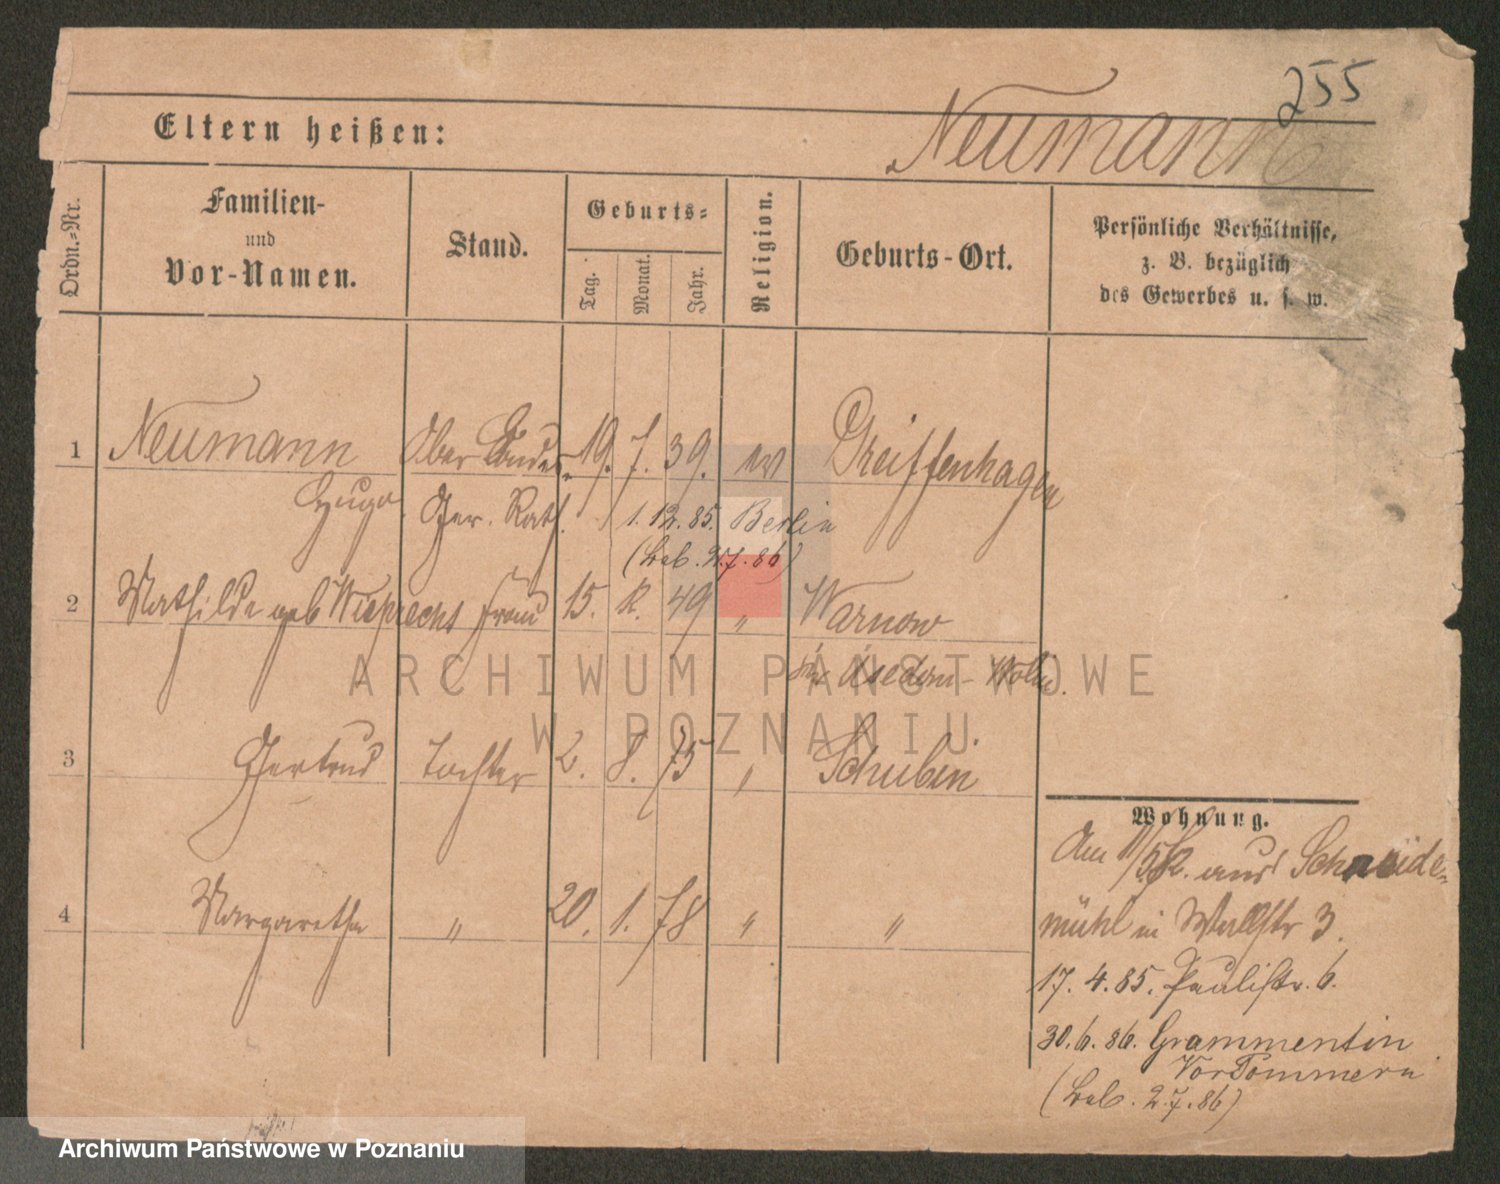 255
Eltern heißen:
Neumann
Ordn.=Nr.
Familien-
und
Vor-Namen.
Stand.
Geburts=
Tag.
Monat.
Jahr.
Religion.
Geburts-Ort.
Persönliche Verhältnisse,
z. B. bezüglich
des Gewerbes u. s. w.
1 Neumann Ober Landes- 19. 7. 39. ev Greiffenhagen
Hugo. Ger. Rath. 1. 12. 85. Berlin
(bab. 2.7.86)
2 Mathilde geb Wieprecht Frau 15. 12. 49 " Warnow
Usedom-Wollin.
3 Gertrud Tochter 2. 8. 75 " Schubin
4 Margarethe " 20. 1. 78 " "
Wohnung.
Am 11/5 82. aus Schneide-
mühl in Wallstr 3.
17. 4. 85. Paulistr. 6.
30. 6. 86. Grammentin
VorPommern
(bab. 2.7.86)
ARCHIWUM PAŃSTWOWE
W POZNANIU
Archiwum Państwowe w Poznaniu